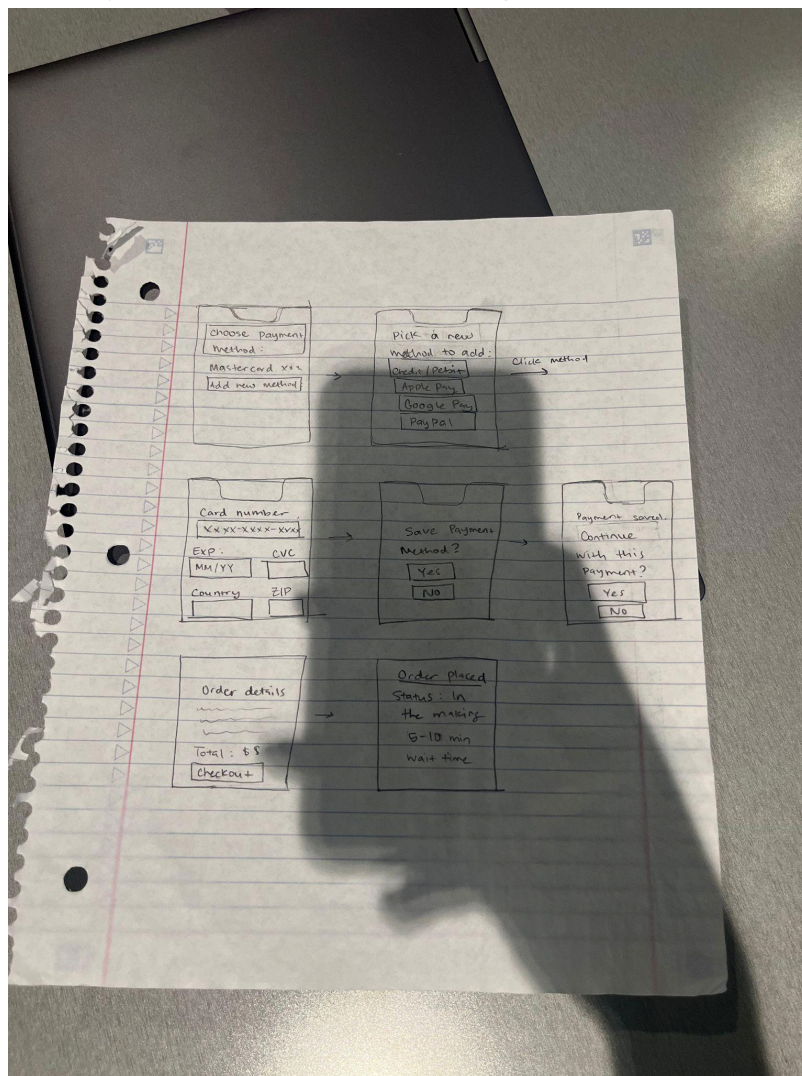 Choose Payment
Method:
Mastercard xxx
Add new method
Pick a new
method to add:
Credit/Debit
Apple Pay
Google Pay
PayPal
Click method
Card number
XXXX-XXXX-XXXX
EXP:
CVC
MM/YY
Country
ZIP
Save Payment
Method?
Yes
No
Payment saved.
Continue
with this
Payment?
Yes
No
Order details
Total: $$
Checkout
Order placed
Status: In
the making
5-10 min
wait time